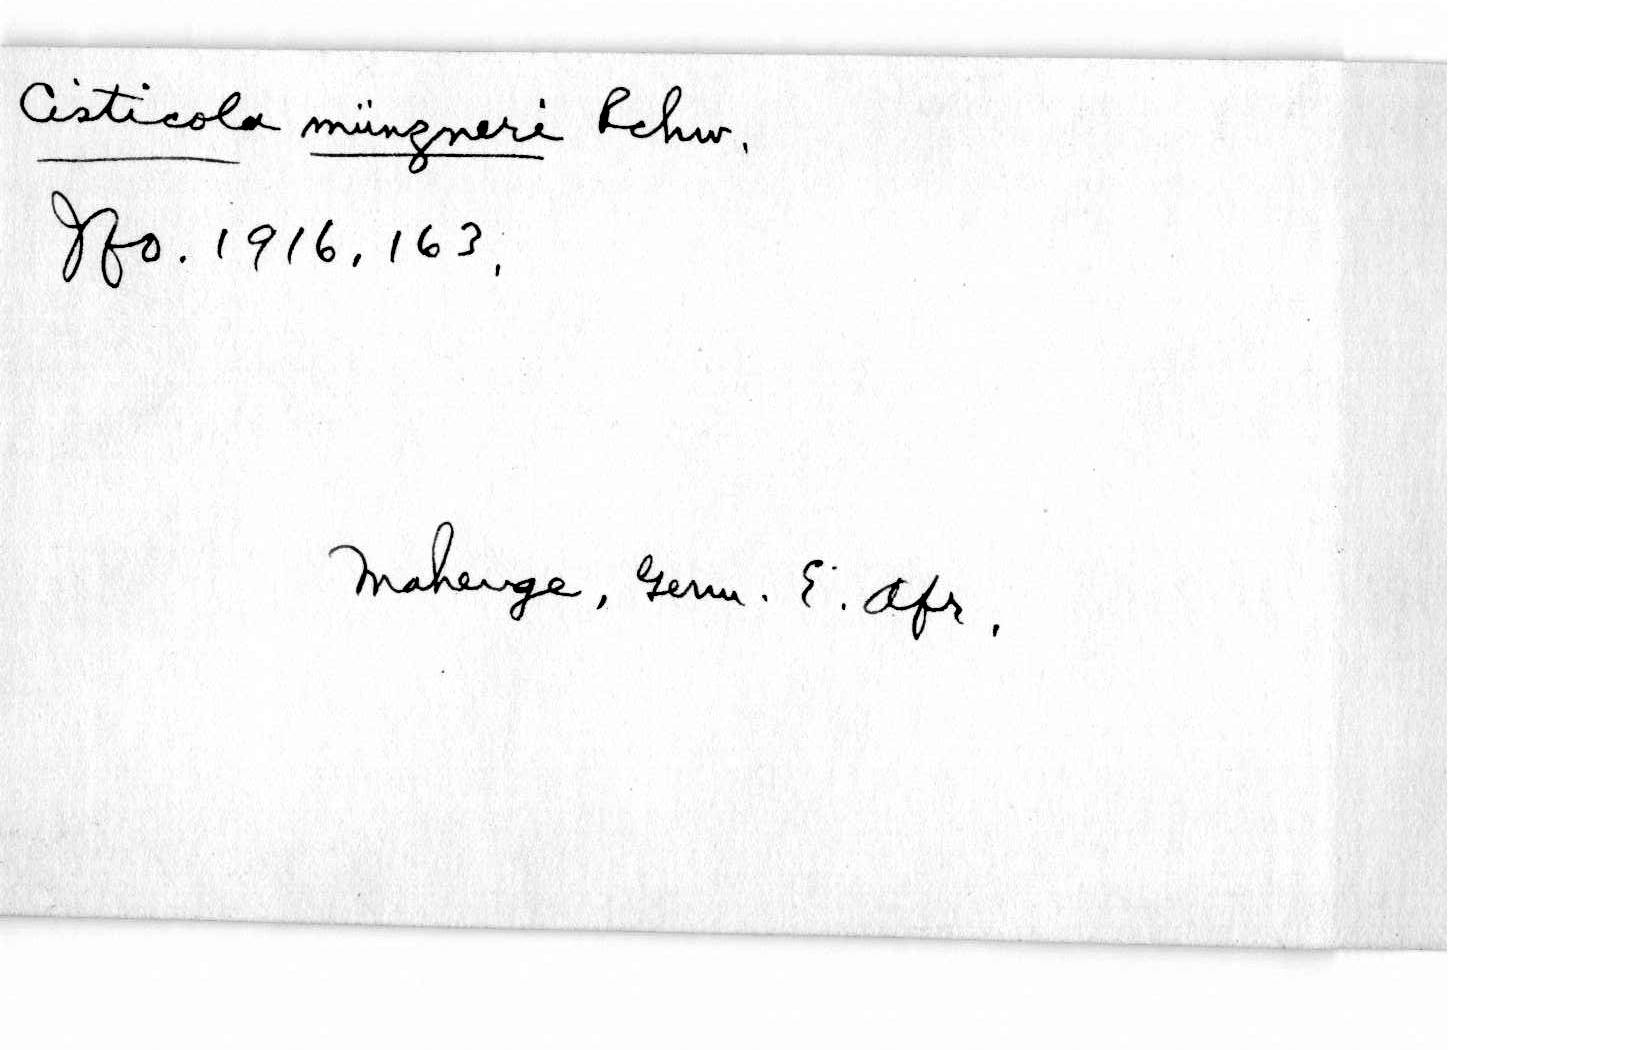 Cisticola münzneri Rchw.
Jfo. 1916, 163.
Mahenge, Germ. E. Afr.